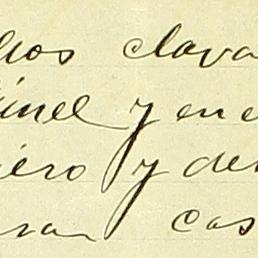 chos clava
inel y en e
iero y de
ran cas